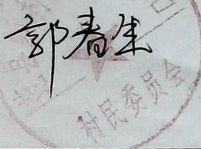 郭春生
村民委员会